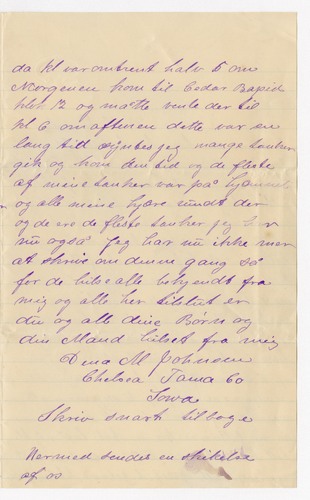 da kl var omtrent halv 5 om
Morgenen kom til Cedar Rapid
klok 12 og matte vente der til
kl 6 om aftenen dette var en
lang tid syntes jeg mange tanker
gik og kom den tid og de fleste
af mine tanker var på hjemmet
og alle mine kjære rundt der
og de ere de fleste tanker jeg har
nu også Jeg har nu ikke mer
at skrive om denne gang så
før de hilse alle bekjendt fra
mig og alle her tilslut er
du og alle dine Børn og
din Mand hilset fra mig
Dena M Johnsen
Chelsea Tama Co
Iowa
Skriv snart tilbage
Hermed sendes en
af os